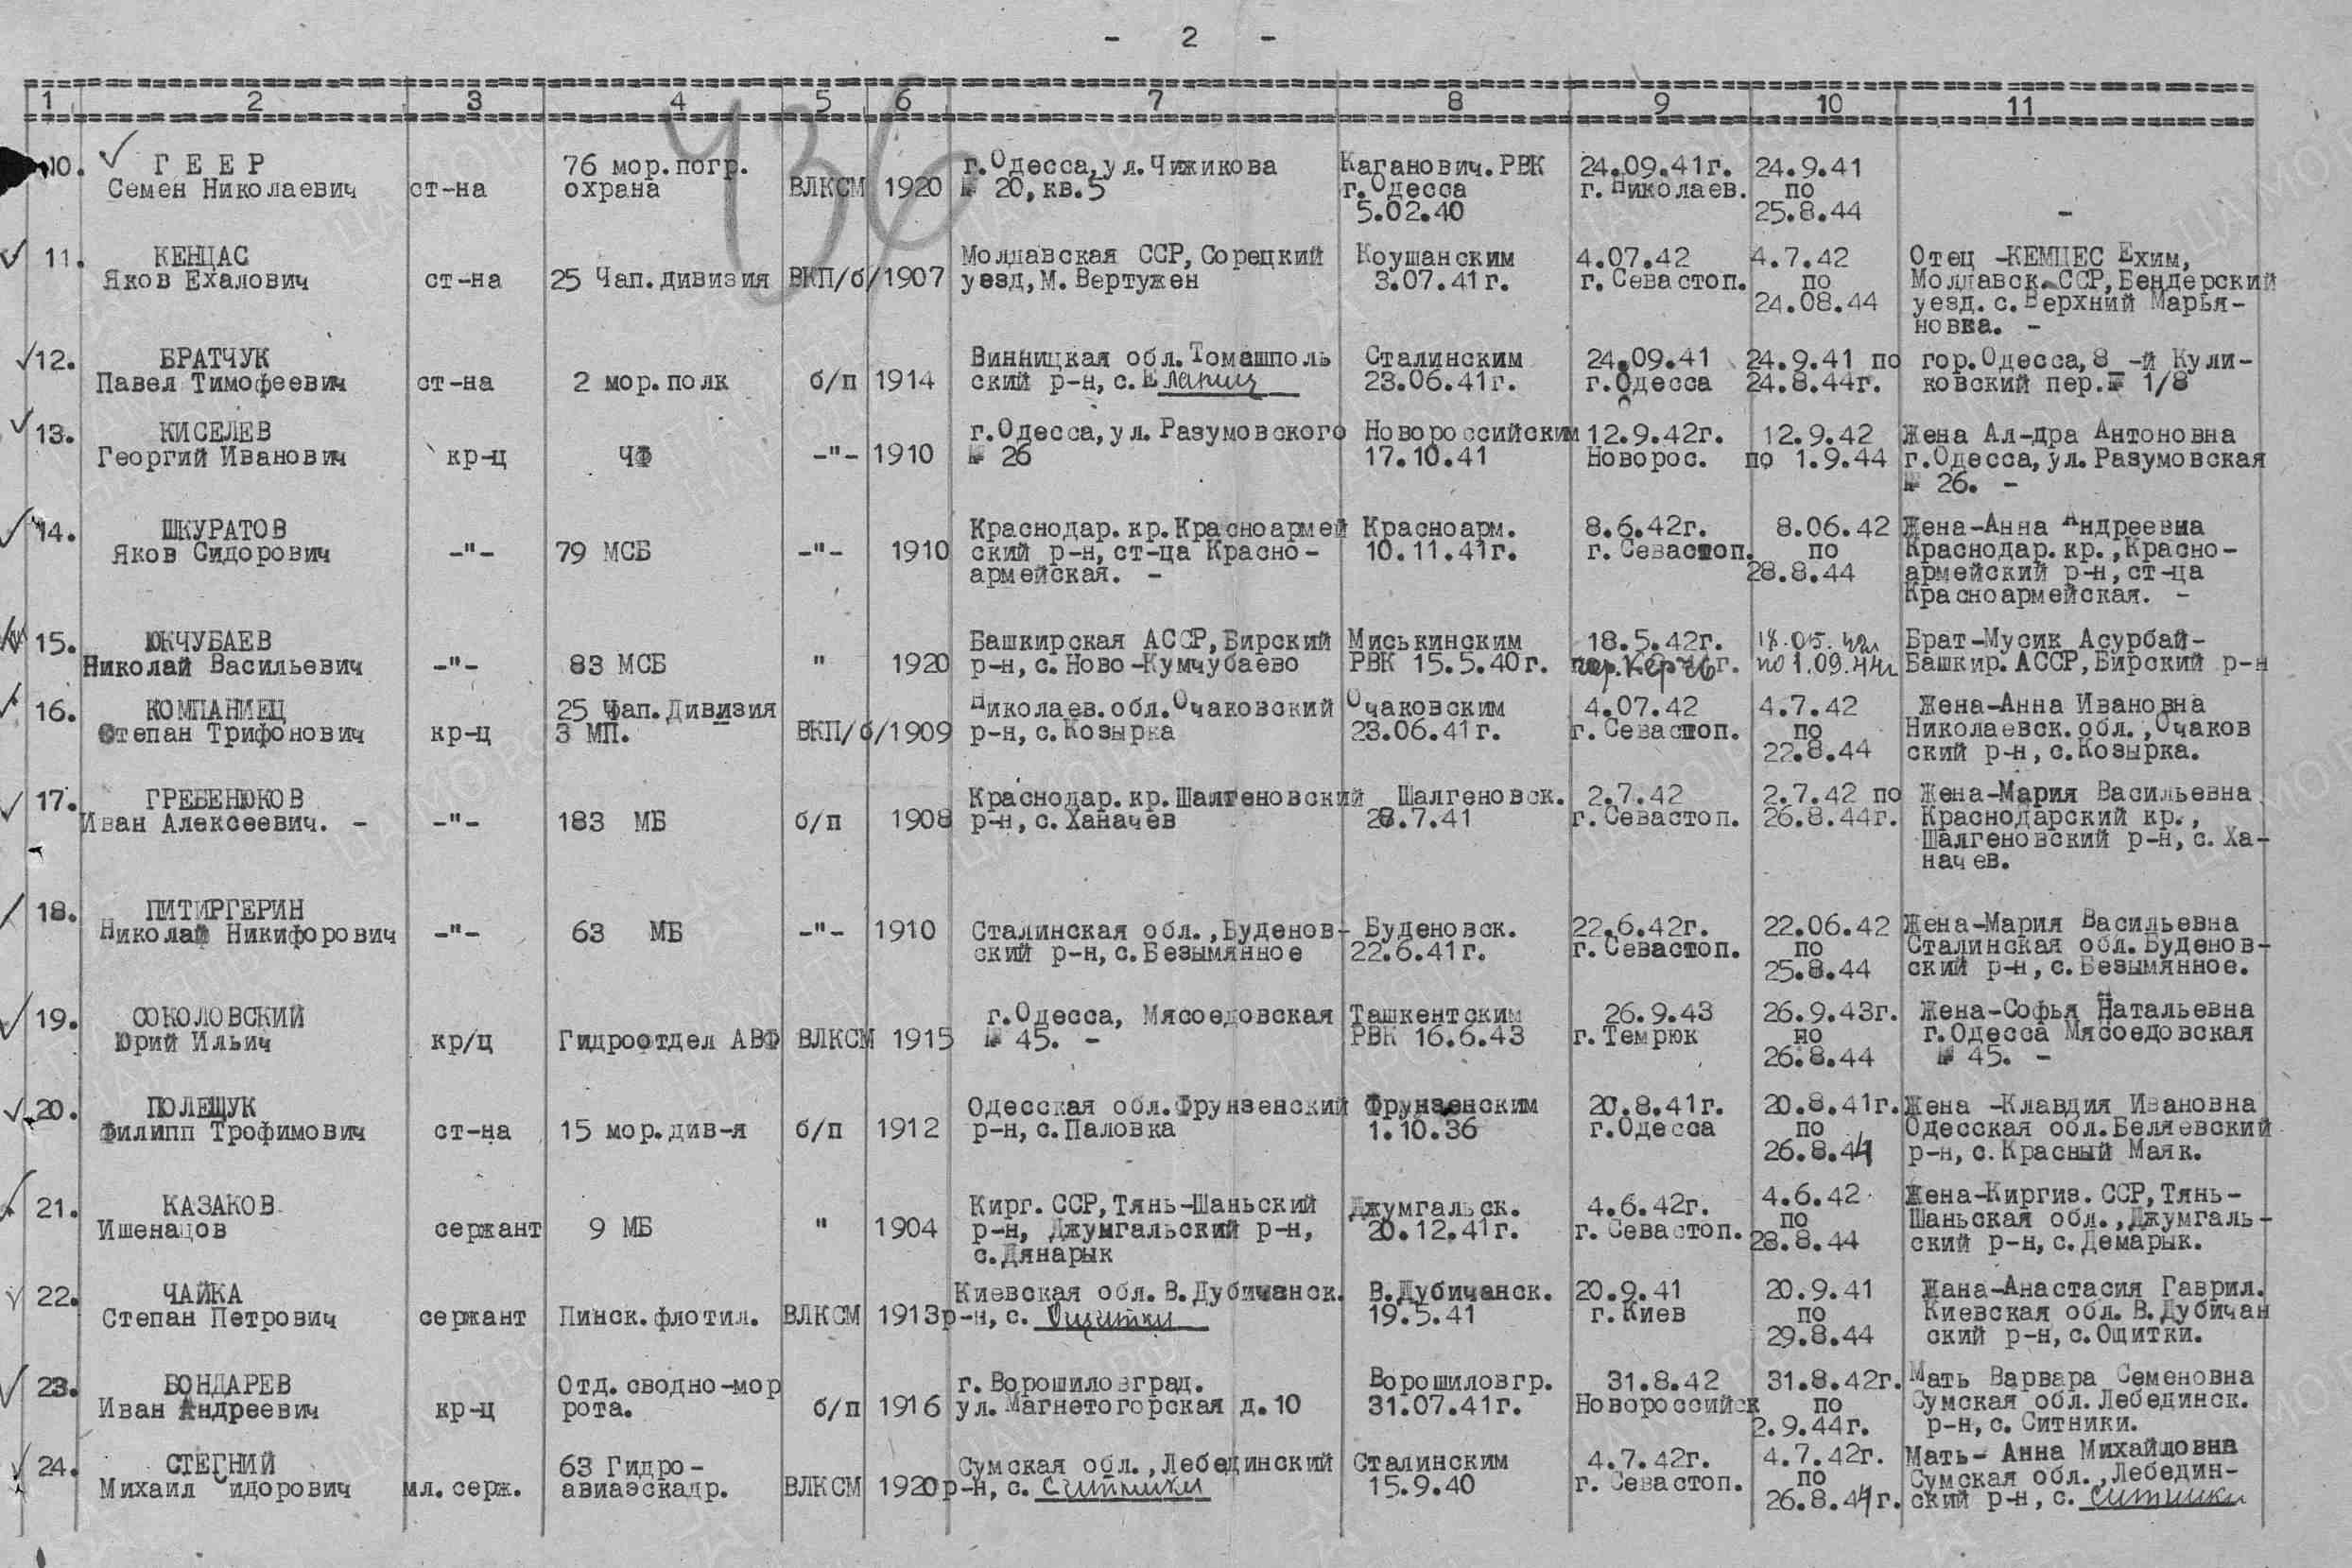 - 2 -
1 2 3 4 5 6 7 8 9 10 11
436
10. ГЕЕР 76 мор.погр. г.Одесса,ул.Чижикова Каганович.РВК 24.09.41г. 24.9.41
Семен Николаевич ст-на охрана ВЛКСМ 1920 № 20,кв.5 г.Одесса г.Николаев. по
5.02.40 25.8.44 -
11. КЕНЦАС Молдавская ССР,Сорецкий Коушанским 4.07.42 4.7.42 Отец -КЕМЦЕС Ехим,
Яков Ехалович ст-на 25 Чап.дивизия ВКП/б/ 1907 уезд,М.Вертужен 3.07.41г. г.Севастоп. по Молдавск.ССР,Бендерский
24.08.44 уезд.с.Верхний Марья-
новка. -
12. БРАТЧУК Винницкая обл.Томашполь Сталинским 24.09.41 24.9.41 по гор.Одесса,8 -й Кули-
Павел Тимофеевич ст-на 2 мор.полк б/п 1914 ский р-н,с.Еланец 23.06.41г. г.Одесса 24.8.44г. ковский пер.№ 1/8
13. КИСЕЛЕВ г.Одесса,ул.Разумовского Новороссийским 12.9.42г. 12.9.42 Жена Ал-дра Антоновна
Георгий Иванович кр-ц ЧФ -"- 1910 № 26 17.10.41 Новорос. по 1.9.44 г.Одесса,ул.Разумовская
№ 26. -
14. ШКУРАТОВ Краснодар.кр.Красноармей Красноарм. 8.6.42г. 8.06.42 Жена-Анна Андреевна
Яков Сидорович -"- 79 МСБ -"- 1910 ский р-н,ст-ца Красно- 10.11.41г. г.Севастоп. по Краснодар.кр.,Красно-
армейская. - 28.8.44 армейский р-н,ст-ца
Красноармейская. -
15. ЮКЧУБАЕВ Башкирская АССР,Бирский Миськинским 18.5.42г. 18.05.42г Брат-Мусик Асурбай-
Николай Васильевич -"- 83 МСБ " 1920 р-н,с.Ново-Кумчубаево РВК 15.5.40г. гор.Керчь г. по 1.09.44г Башкир.АССР,Бирский р-н
16. КОМПАНИЕЦ 25 Чап.Дивизия Николаев.обл.Очаковский Очаковским 4.07.42 4.7.42 Жена-Анна Ивановна
Степан Трифонович кр-ц 3 МП. ВКП/б/ 1909 р-н,с.Козырка 23.06.41г. г.Севастоп. по Николаевск.обл.,Очаков
22.8.44 ский р-н,с.Козырка.
17. ГРЕБЕНЮКОВ Краснодар.кр.Шалтеновский Шалгеновск. 2.7.42 2.7.42 по Жена-Мария Васильевна
Иван Алексеевич. - -"- 183 МБ б/п 1908 р-н,с.Ханачев 28.7.41 г.Севастоп. 26.8.44г. Краснодарский кр.,
Шалгеновский р-н,с.Ха-
начев.
18. ПИТИРГЕРИН 22.6.42г. 22.06.42 Жена-Мария Васильевна
Николай Никифорович -"- 63 МБ -"- 1910 Сталинская обл.,Буденов- Буденовск. г.Севастоп. по Сталинская обл.Буденов-
ский р-н,с.Безымянное 22.6.41г. 25.8.44 ский р-н,с.Безымянное.
19. СОКОЛОВСКИЙ г.Одесса, Мясоедовская Ташкентским 26.9.43 26.9.43г. Жена-Софья Натальевна
Юрий Ильич кр/ц Гидроотдел АВФ ВЛКСМ 1915 № 45. - РВК 16.6.43 г.Темрюк по г.Одесса Мясоедовская
26.8.44 № 45. -
20. ПОЛЕЩУК Одесская обл.Фрунзенский Фрунзенским 20.8.41г. 20.8.41г. Жена -Клавдия Ивановна
Филипп Трофимович ст-на 15 мор.див-я б/п 1912 р-н,с.Паловка 1.10.36 г.Одесса по Одесская обл.Беляевский
26.8.44 р-н,с.Красный Маяк.
21. КАЗАКОВ Кирг.ССР,Тянь-Шаньский Джумгальск. 4.6.42г. 4.6.42 Жена-Киргиз.ССР,Тянь-
Ишенацов сержант 9 МБ " 1904 р-н, Джумгальский р-н, 20.12.41г. г.Севастоп. по Шаньская обл.,Джумгаль-
с.Дянарык 28.8.44 ский р-н,с.Демарык.
22. ЧАЙКА Киевская обл.В.Дубичанск. В.Дубичанск. 20.9.41 20.9.41 Жана-Анастасия Гаврил.
Степан Петрович сержант Пинск.флотил. ВЛКСМ 1913 р-н,с. Ощитки 19.5.41 г.Киев по Киевская обл.В.Дубичан
29.8.44 ский р-н,с.Ощитки.
23. БОНДАРЕВ Отд.сводно-мор г.Ворошиловград. Ворошиловгр. 31.8.42 31.8.42г. Мать Варвара Семеновна
Иван Андреевич кр-ц рота. б/п 1916 ул.Магнетогорская д.10 31.07.41г. Новороссийск по Сумская обл.Лебединск.
2.9.44г. р-н,с.Ситники.
24. СТЕГНИЙ 63 Гидро- Сумская обл.,Лебединский Сталинским 4.7.42г. 4.7.42г. Мать- Анна Михайловна
Михаил Сидорович мл.серж. авиаэскадр. ВЛКСМ 1920 р-н,с. Ситники 15.9.40 г.Севастоп. по Сумская обл.,Лебедин-
26.8.44г. ский р-н,с. Ситники